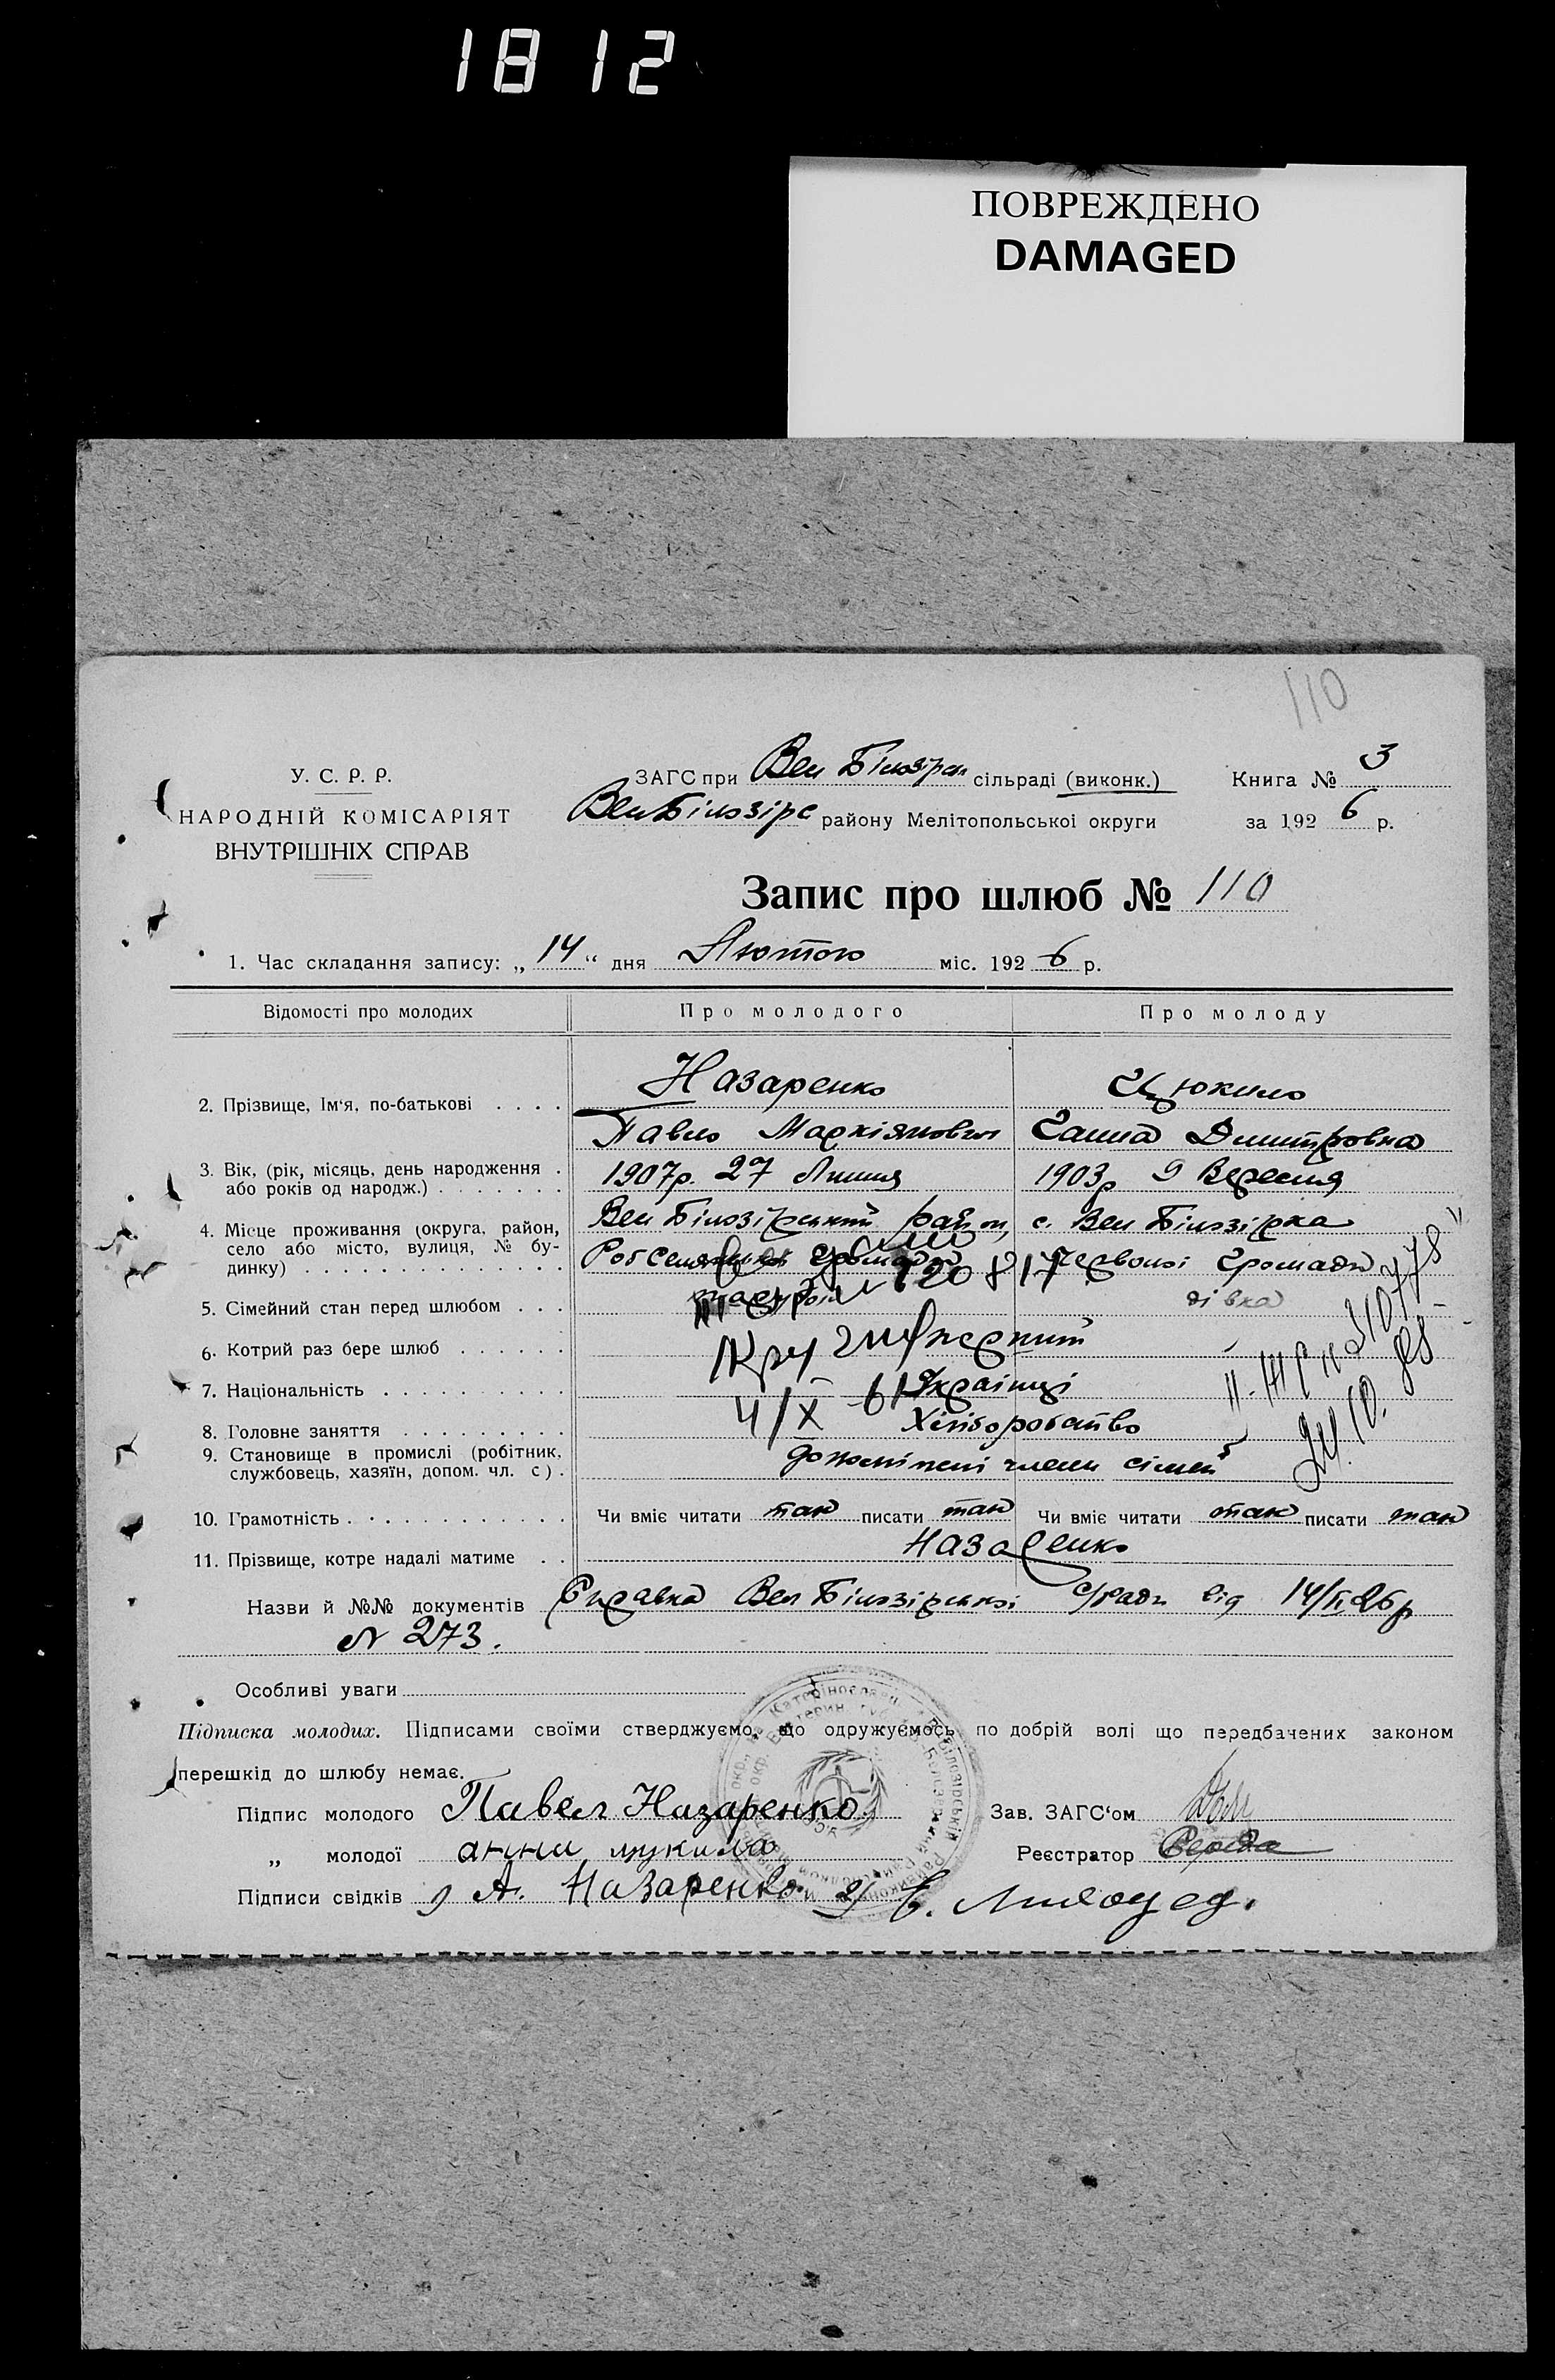 1812
ПОВРЕЖДЕНО
DAMAGED
110
У. С. Р. Р.
НАРОДНІЙ КОМІСАРІЯТ
ВНУТРІШНІХ СПРАВ
ЗАГС при Вел Білозірс сільраді (виконк.)
Вел Білозірс району Мелітопольської округи
Книга № 3
за 1926 р.
Запис про шлюб № 110
1. Час складання запису: „14“ дня Лютого міс. 1926 р.
Відомості про молодих Про молодого Про молоду
2. Прізвище, Ім'я, по-батькові . . . . Назаренко Цюкило
Павло Маркіянович Ганна Дмитровна
3. Вік, (рік, місяць, день народження . 1907р. 27 Липня 1903р 9 Вересня
або років од народж.) . . . . . . .
4. Місце проживання (округа, район, Вел Білозірський район, с. Вел Білозірка
село або місто, вулиця, № бу-
динку) . . . . . . . . . . . . . . Червоної Громади
5. Сімейний стан перед шлюбом . . . дівка
6. Котрий раз бере шлюб . . . . . . перший
7. Національність . . . . . . . . . . Українці
4/X 61
8. Головне заняття . . . . . . . . . Хліборобство
9. Становище в промислі (робітник, члени сімей
службовець, хазяїн, допом. чл. с) .
10. Грамотність . . . . . . . . . . . . Чи вміє читати так писати так Чи вміє читати так писати так
11. Прізвище, котре надалі матиме . . Назаренко
Назви й №№ документів Справка Вел Білозірської с/ради від 14/II 26р
N 273.
Особливі уваги
Підписка молодих. Підписами своїми стверджуємо, що одружуємось по добрій волі що передбачених законом
перешкід до шлюбу немає.
Підпис молодого Павел Назаренко Зав. ЗАГС'ом
„ молодої анна цукило Реєстратор
Підписи свідків 1) А. Назаренко 2)